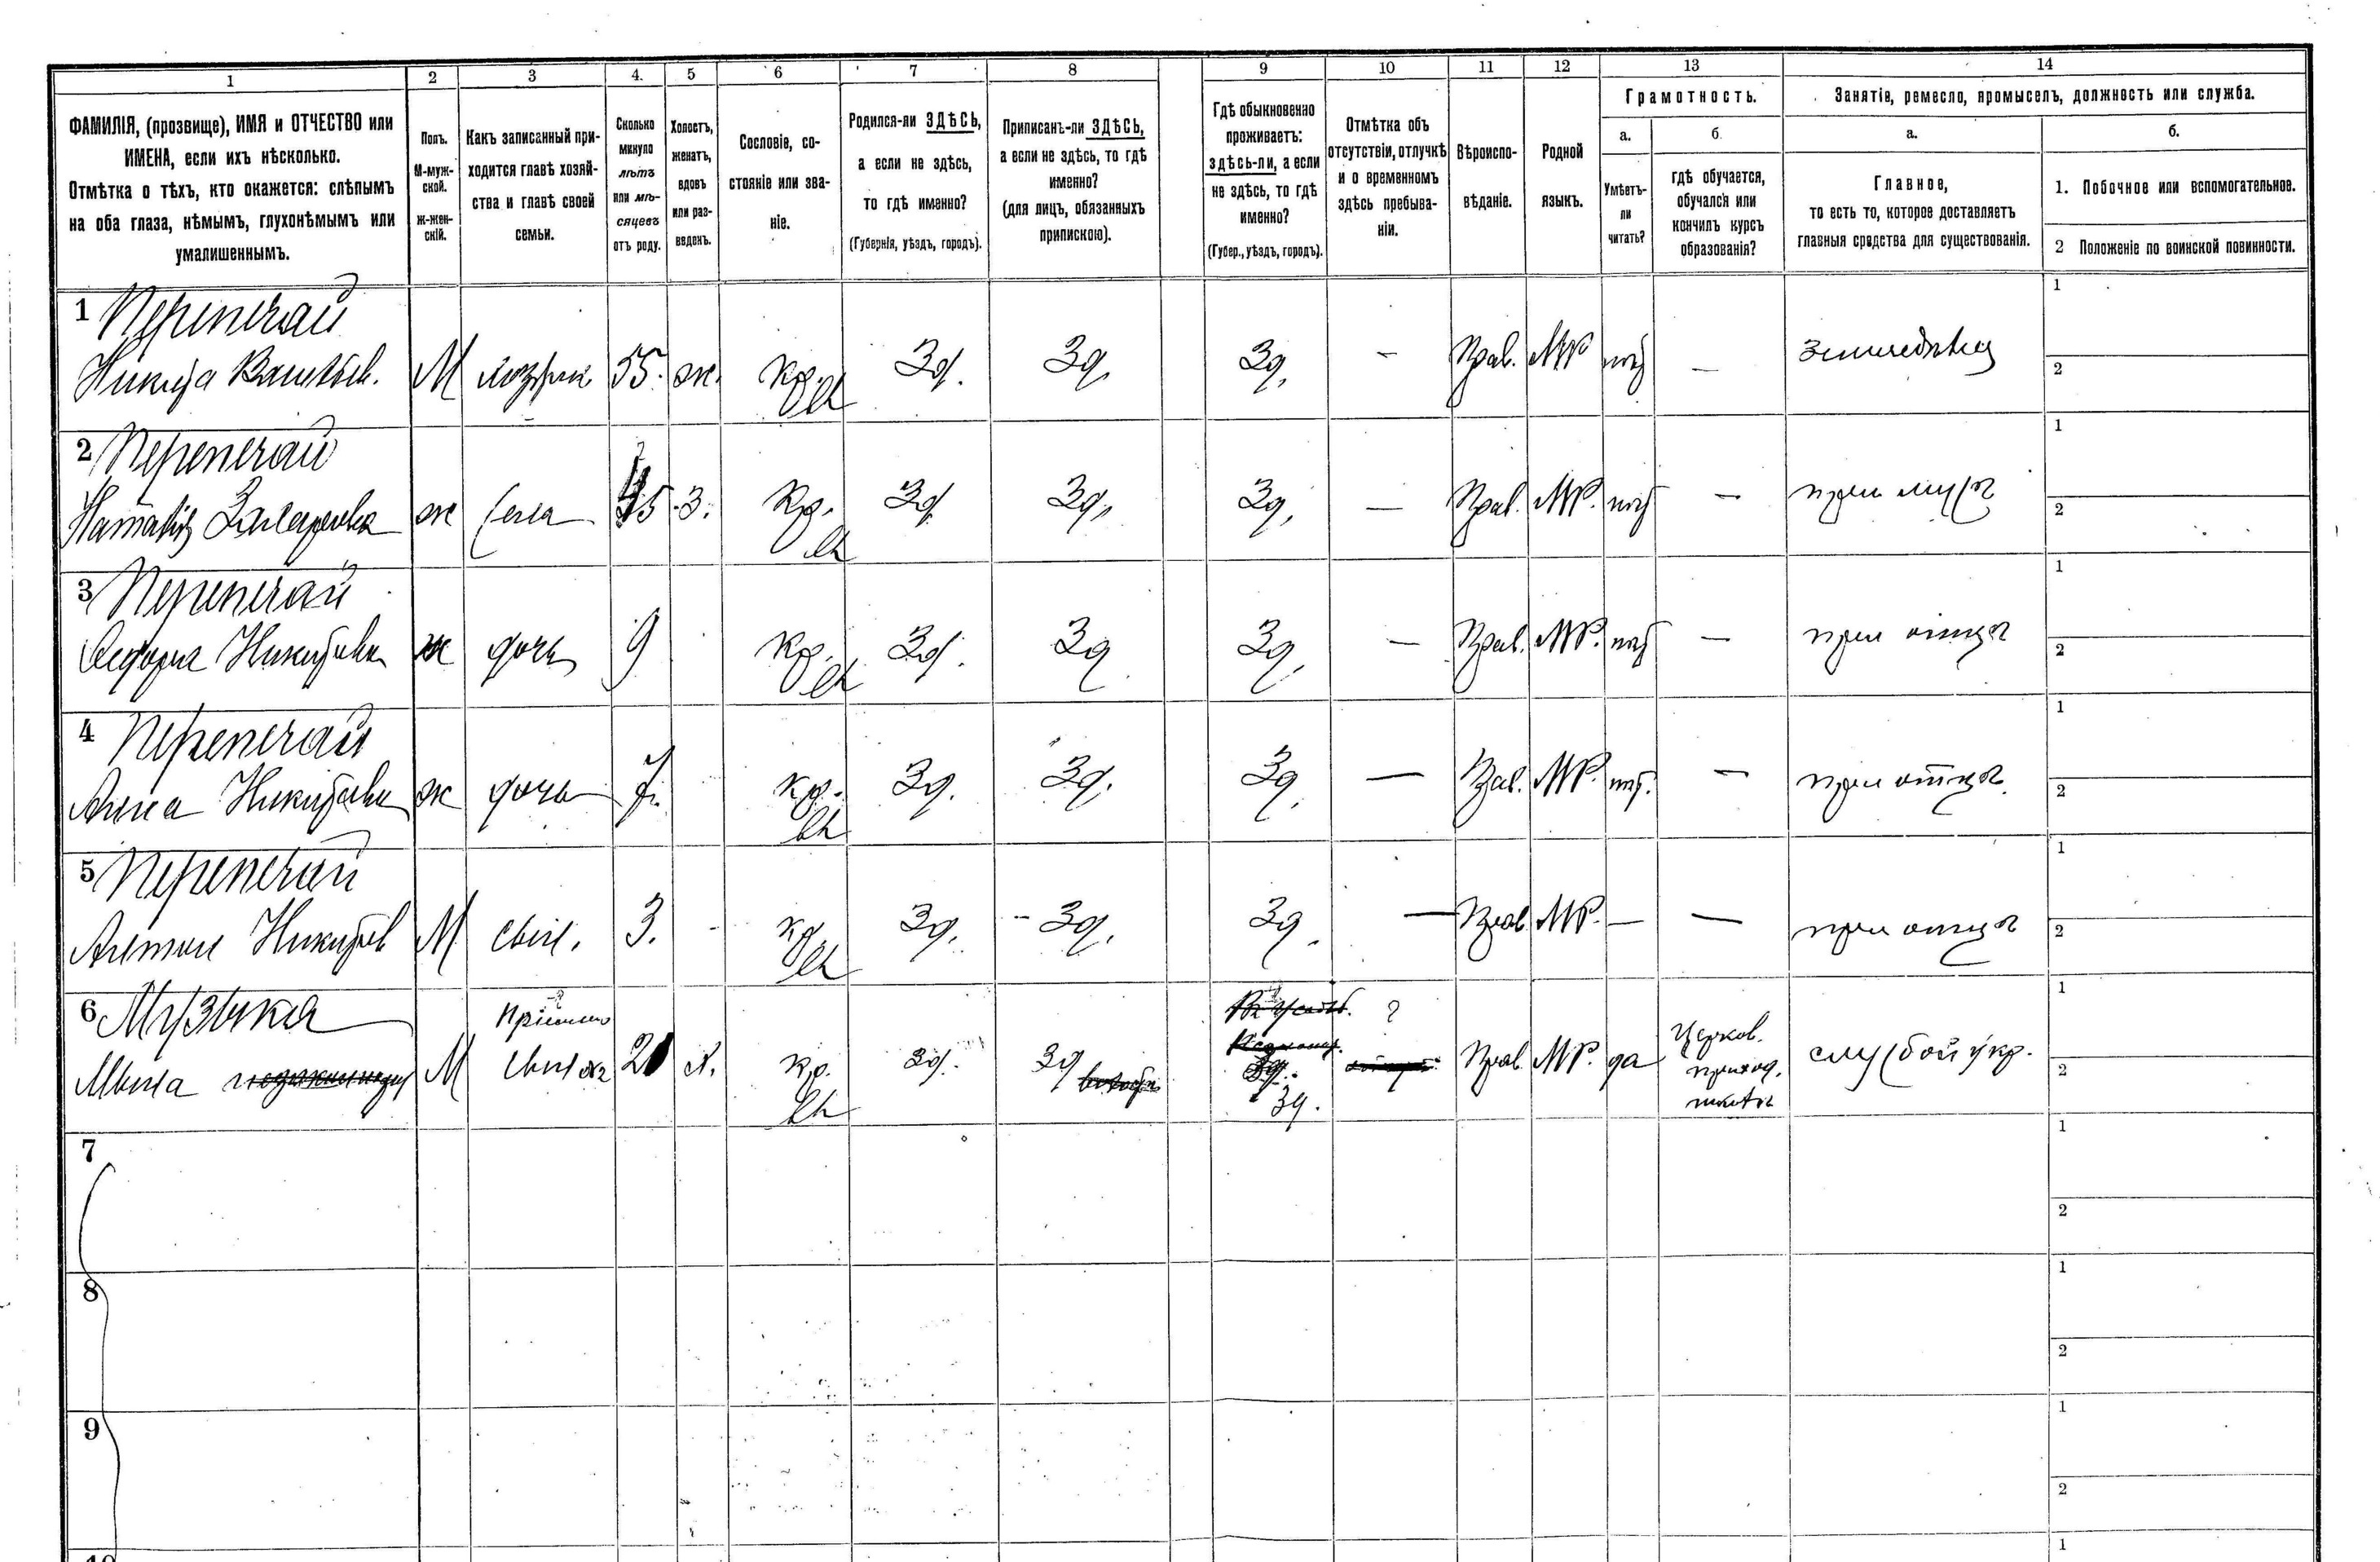 1 2 3 4. 5 6 7 8 9 10 11 12 13 14
ФАМИЛІЯ, (прозвище), ИМЯ и ОТЧЕСТВО или
ИМЕНА, если ихъ нѣсколько.
Отмѣтка о тѣхъ, кто окажется: слѣпымъ
на оба глаза, нѣмымъ, глухонѣмымъ или
умалишеннымъ.
Полъ.
М-муж-
ской.
ж-жен-
скій.
Какъ записанный при-
ходится главѣ хозяй-
ства и главѣ своей
семьи.
Сколько
минуло
лѣтъ
или мѣ-
сяцевъ
отъ роду.
Холостъ,
женатъ,
вдовъ
или раз-
веденъ.
Сословіе, со-
стояніе или зва-
ніе.
Родился-ли ЗДѢСЬ,
а если не здѣсь,
то гдѣ именно?
(Губернія, уѣздъ, городъ).
Приписанъ-ли ЗДѢСЬ,
а если не здѣсь, то гдѣ
именно?
(для лицъ, обязанныхъ
припискою).
Гдѣ обыкновенно
проживаетъ:
здѣсь-ли, а если
не здѣсь, то гдѣ
именно?
(Губер., уѣздъ, городъ).
Отмѣтка объ
отсутствіи, отлучкѣ
и о временномъ
здѣсь пребыва-
ніи.
Вѣроиспо-
вѣданіе.
Родной
языкъ.
Грамотность.
а.
Умѣетъ-
ли
читать?
б.
гдѣ обучается,
обучался или
кончилъ курсъ
образованія?
Занятія, ремесло, промыселъ, должность или служба.
а.
Главное,
то есть то, которое доставляетъ
главныя средства для существованія.
б.
1. Побочное или вспомогательное.
2 Положеніе по воинской повинности.
1 Перепечай
Никита Васильев. М хозяин 55. ж. Кр. Зд. Зд. Зд. — Прав. МР нѣт — земледѣлец
1
2
2 Перепечай
Наталія Захаровна ж жена 45 З. Кр. Зд Зд. Зд. — Прав. МР. нѣт — при мужѣ
1
2
3 Перепечай
Федора Никитовна ж дочь 9 Кр. Зд. Зд Зд. — Прав. МР. нѣт — при отцѣ
1
2
4 Перепечай
Анна Никитовна ж дочь 7. кр. Зд. Зд. Зд. — Прав. МР. нѣт. — при отцѣ
1
2
5 Перепечай
Антон Никитов М сын. 3. кр. Зд. Зд. Зд. — Прав МР. — — при отцѣ
1
2
6 Музыка
М 20 х. кр. зд. зд зд. ? Прав. МР. да
Церков.
приход.
школѣ
службой у кр.
1
2
7
1
2
8
1
2
9
1
2
10
1